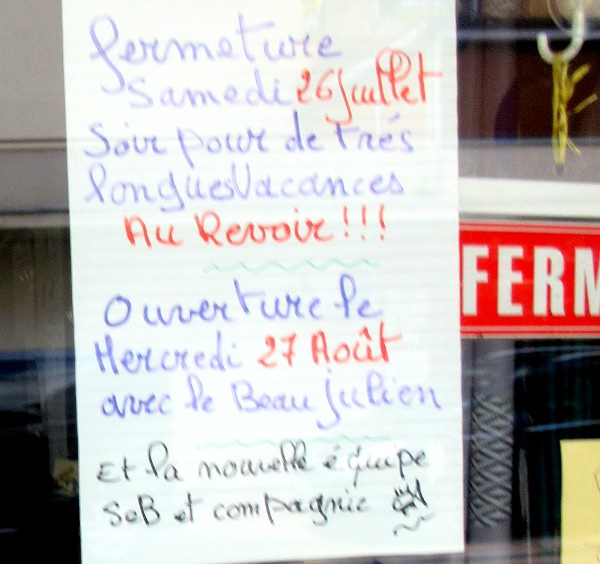 fermeture
Samedi 26 juillet
Soir pour de très
longues Vacances
Au Revoir !!!
Ouverture le
Mercredi 27 Août
avec le Beau julien
Et la nouvelle équipe
SeB et compagnie
FERM